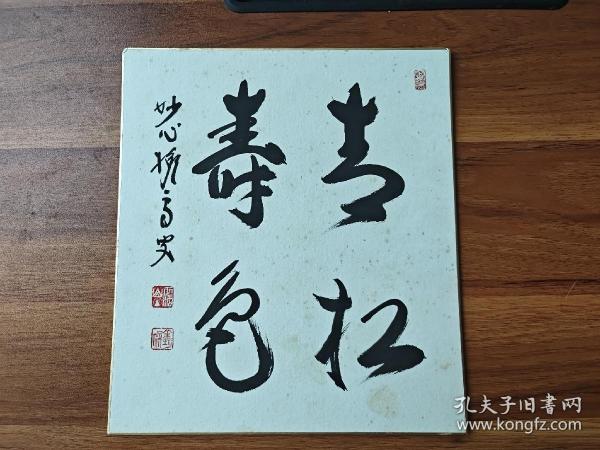 青松
寿色
妙心
孔夫子旧书网
www.kongfz.com